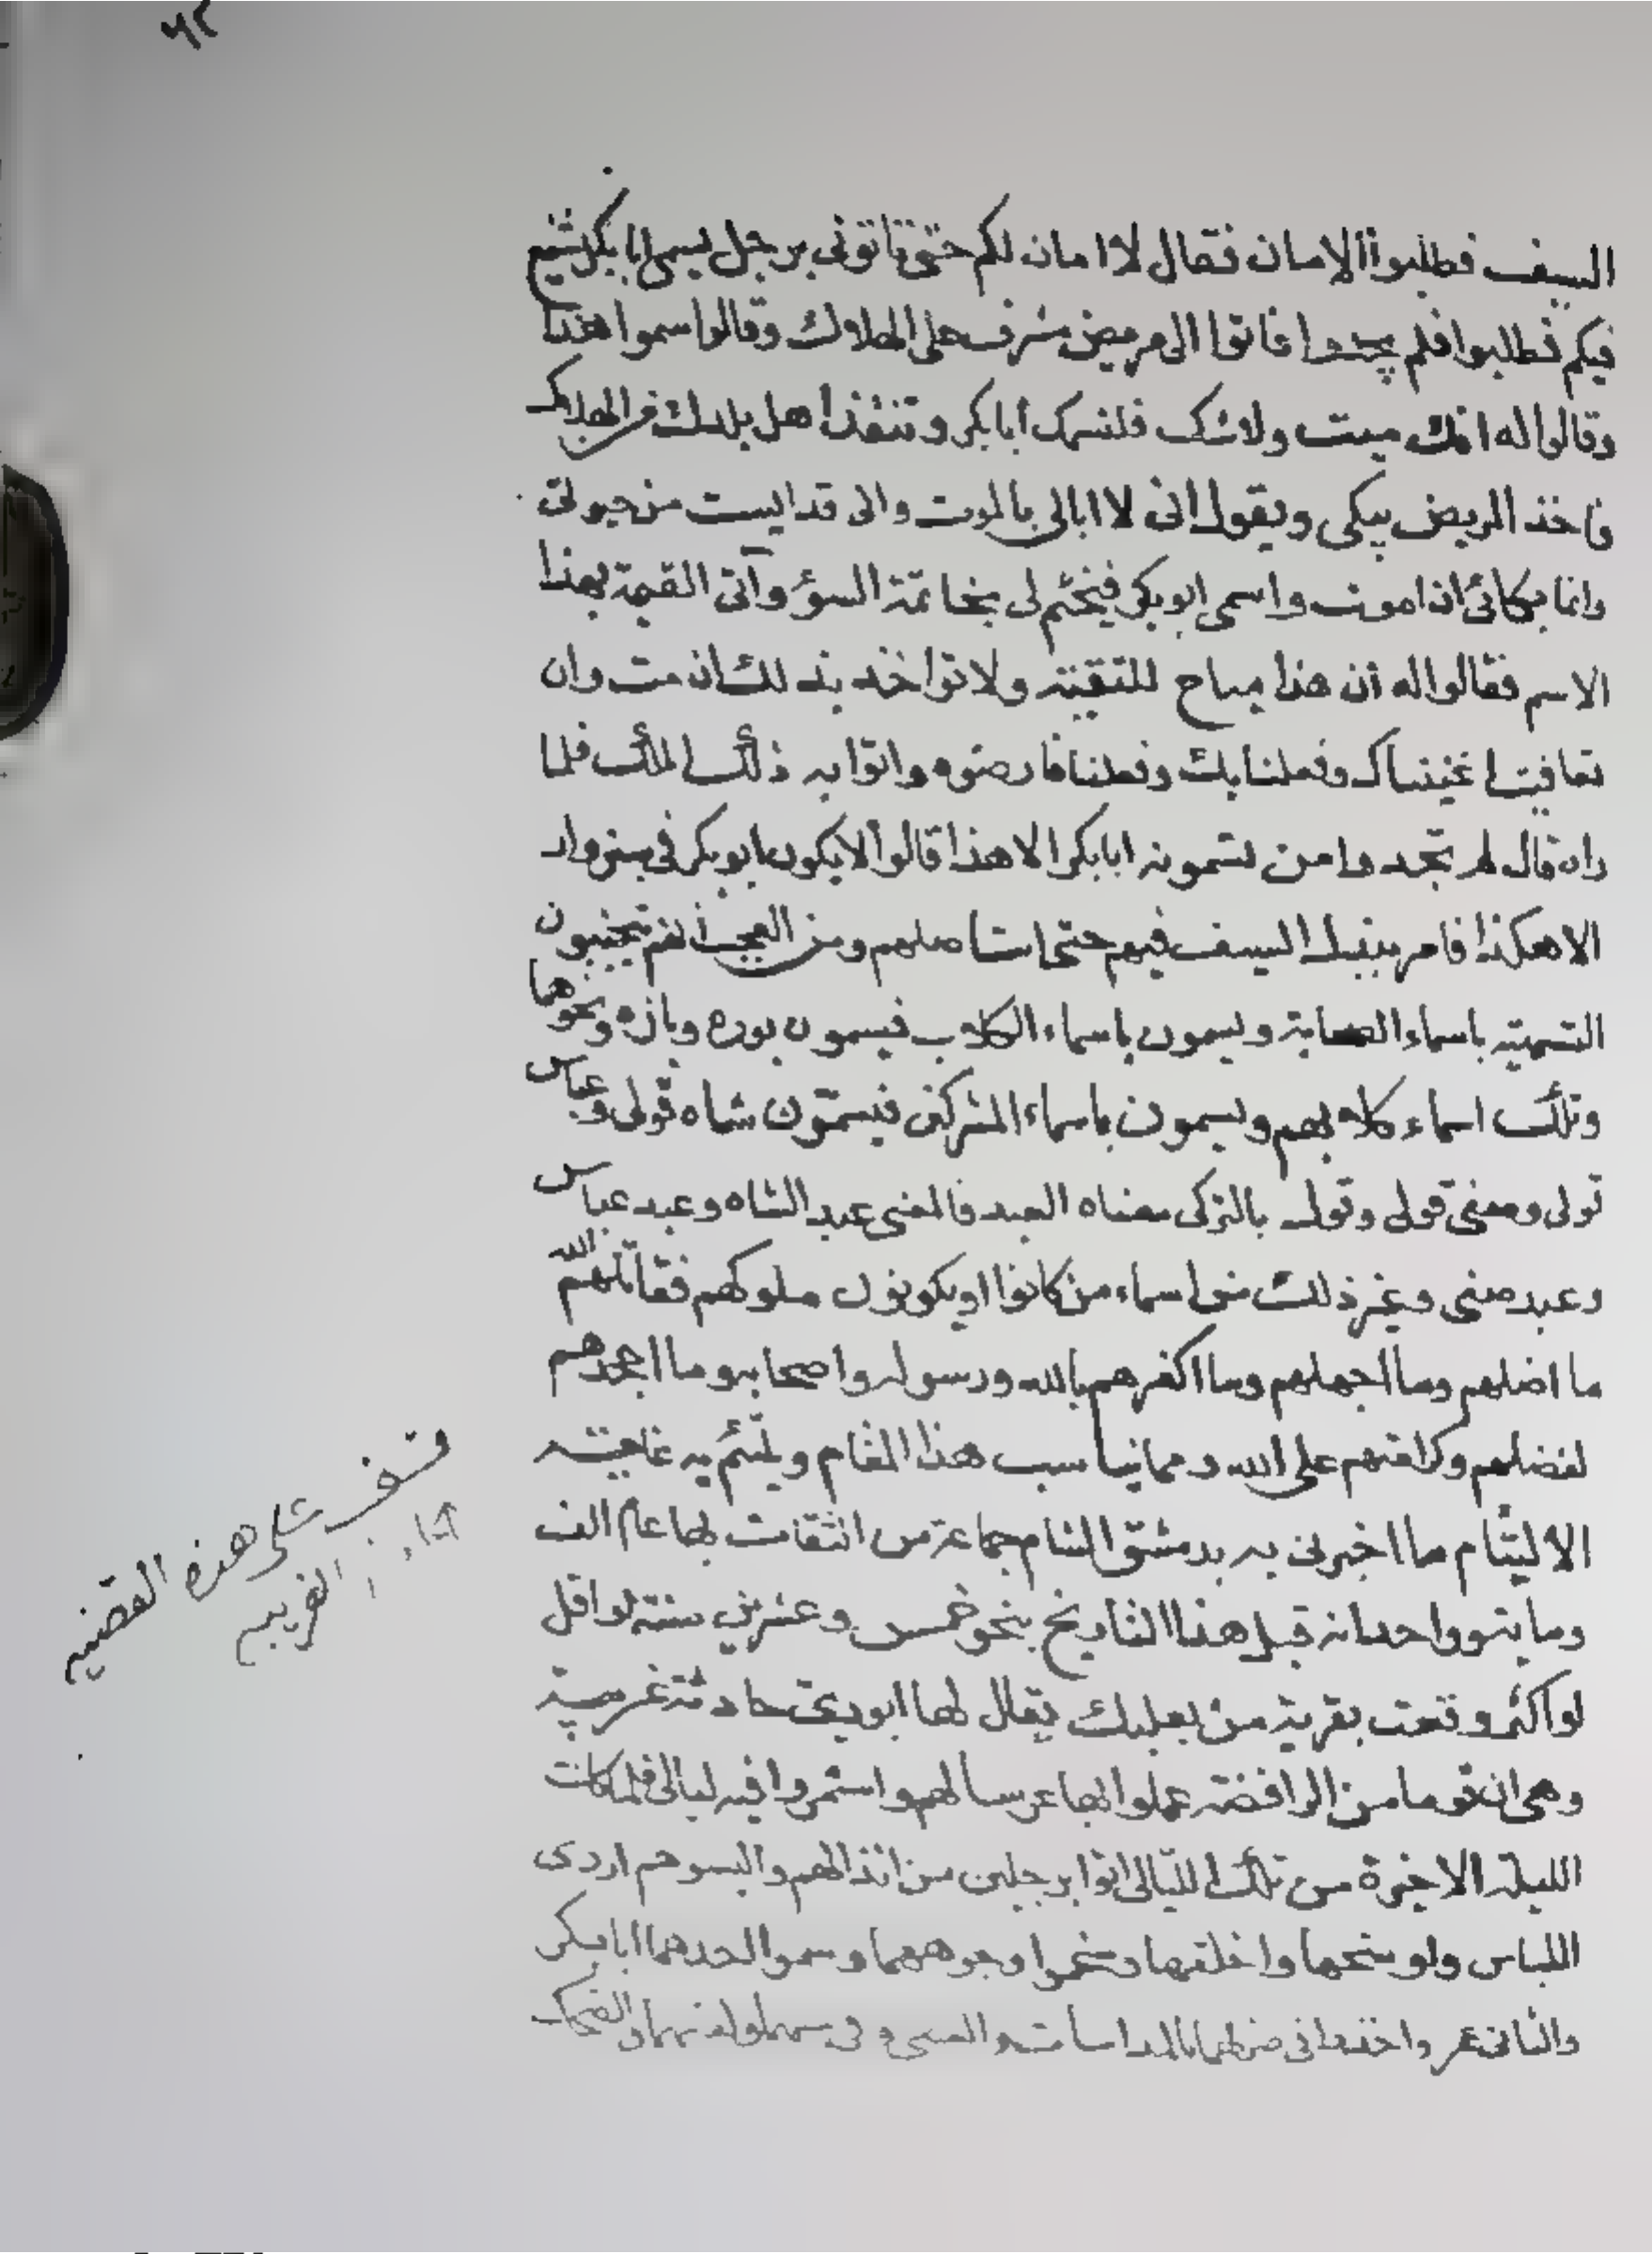 ٦٢
السيف فطلبوا الامان فقال لا امان لكم حتى تاتوني برجل يسمى ابا بكر
فيكم فطلبوا فلم يجدوا فاتوا الى مريض مشرف على الهلاك وقالوا سموا هذا
وقالوا له انك ميت ولا شك فلنسمك أبا بكر وتنقذ أهل بلدك من الهلاك
فاخذ المريض يبكي ويقول انى لا ابالى بالموت وانى قد ايست من حيوتى
وانما بكائى ان اموت واسمى ابو بكر فيختم لى بخاتمة السوء وآتى القيمة بهذا
الاسم فقالوا له أن هذا مباح للتقية ولا تواخذ بذلك ان مت وان
تعافيت اغنيناك وفعلنا بك وفعلنا فارضوه واتوا به ذلك الملك فلما
راه قال لم تجدوا من تسمونه ابا بكر الا هذا قالوا لا يكون ابو بكر فى سبزوار
الا هكذا فامر السيف فيهم حتى استاصلهم ومن العجب انهم يتجنبون
التسمية باسماء الصحابة ويسمون باسماء الكلاب فيسمون بوره وبازه ونحوهما
وتلك اسماء كلابهم ويسمون باسماء المشركين فيسمون شاه قولى وعباس
قولى ومعنى قولى وقول بالتركى معناه العبد فالمعنى عبد الشاه وعبد عباس
وعبد صفى وغير ذلك من اسماء من كانوا او يكونون ملوكهم فقاتلهم الله
ما اضلهم وما اجهلهم وما اكفرهم بالله ورسوله واصحابه وما اجحدهم
لفضلهم وكرامتهم على الله ومما يناسب هذا المقام ويلتئم به غاية
الالتئام ما اخبرنى به بدمشق الشام جماعة من الثقات بها عام الف
وما يتو واحد انه قبل هذا التاريخ بنحو خمس وعشرين سنة لو اقل
لو اكثر وقعت بقرية من بعلبك يقال لها حادثة غريبة
وهى ان قوما من الرافضة عملوا بها عرسا لهم واستمروا فيه ليالى فلما كانت
الليلة الاخيرة من تلك الليالى اتوا برجلين من انذالهم والبسوهم اردى
اللباس واوسخها واخلقها وسخموا وجوههما وسموا احدهما ابا بكر
والثانى عمر واخذوا فى ضربهما والضحك
قف على هذه القضية
الغريبة